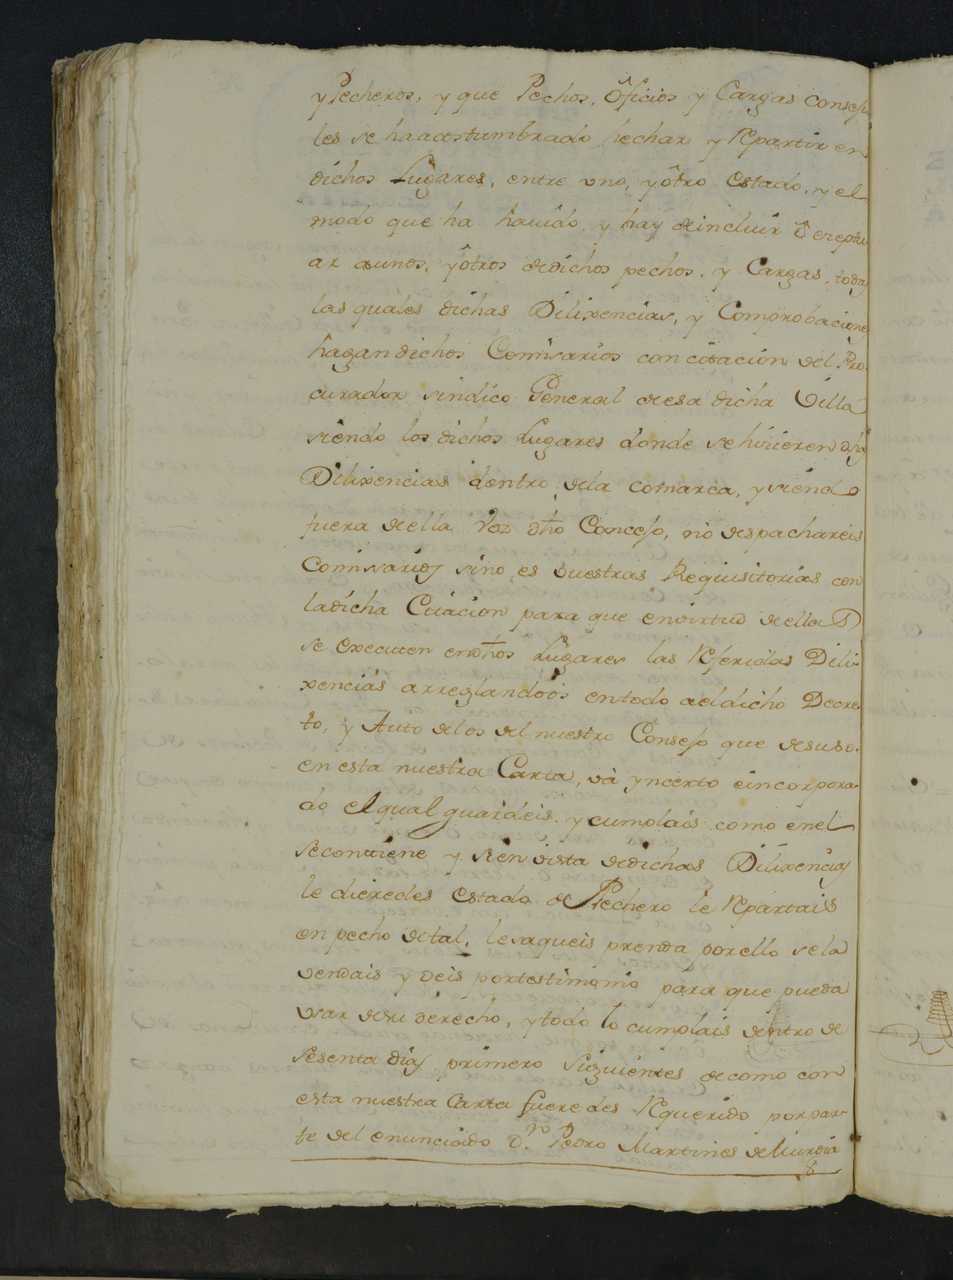 y Pecheros, y que Pechos, Oficios y Cargas conseji
les se ha acostumbrado hechar y Repartir en
dichos Lugares, entre uno, y otro estado, y el
modo que ha havido, y hay de incluir ô exeptu
ar a unos, y otros de dichos pechos, y Cargas, todas
las quales dichas Dilixencias, y Comprobaciones
hagan dichos Comisarios con citacion del Pro
curador sindico General de esa dicha Villa
siendo los dichos Lugares donde se hicieren dhas
Dilixencias dentro de la comarca, y siendo
fuera de ella Voz dho Concejo, no despachareis
Comisarios sino es vuestras Requisitorias con
la dicha Citacion para que en virtud de ella
se executen en dhos Lugares las Referidas Dili
xencias arreglandoos en todo a el dicho Decre
to, y Auto de los del nuestro Consejo que de suso
en esta nuestra Carta, và ynserto e incorpora
do el qual guardeis, y cumplais como en el
se contiene y si en vista de dichas Dilixencias
le dieredes estado de Pechero le Repartais
en pecho de tal, le saqueis prenda por ello se la
vendais y deis por testimonio para que pueda
usar de su derecho, y todo lo cumplais dentro de
sesenta dias primero siguientes de como con
esta nuestra Carta fueredes Requerido por par
te del enunciado Dn Pedro Martines de Murguia